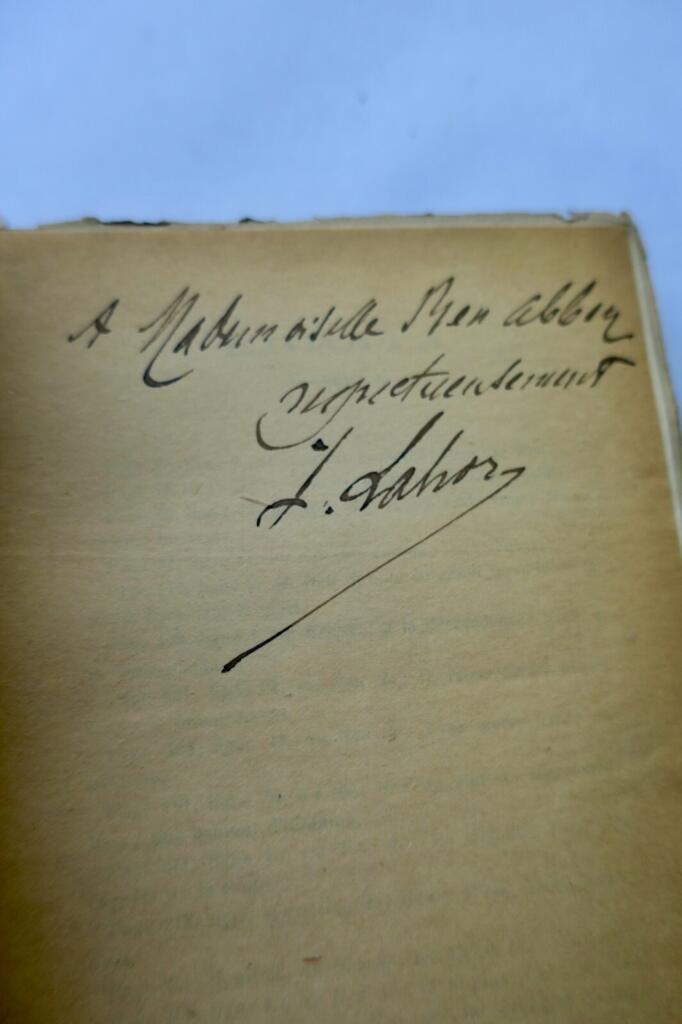 A Mademoiselle Ben Abben
respectueusement
J. Lahor